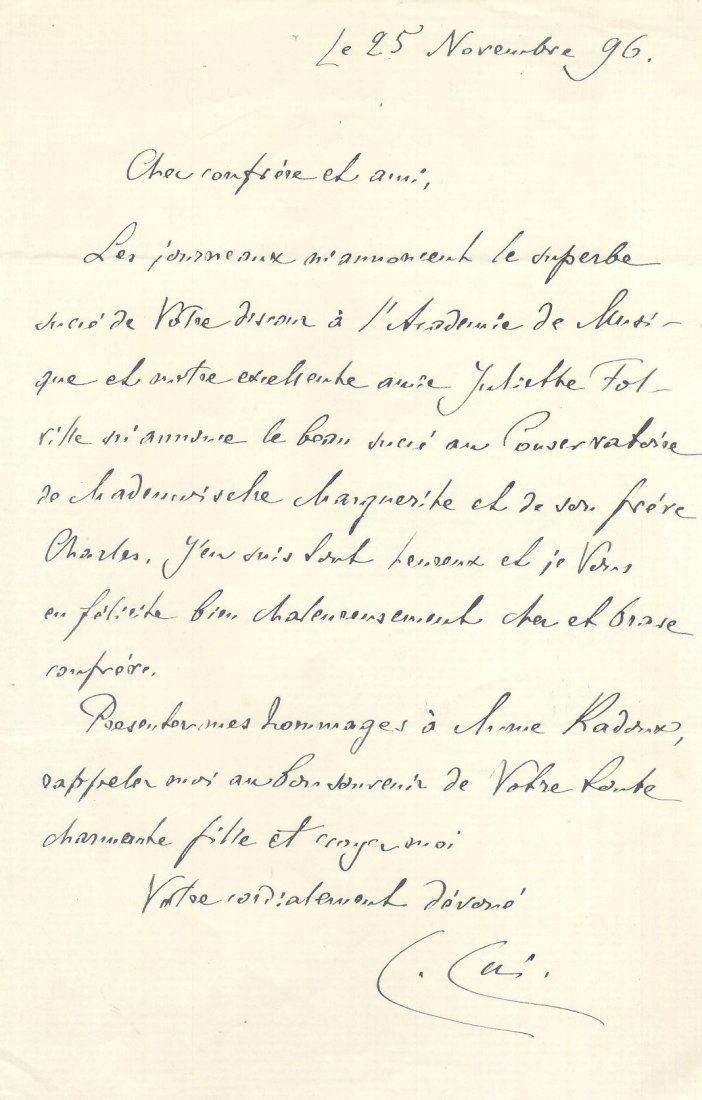 Le 25 Novembre 96.
Cher confrère et ami,
Les journeaux m'annoncent le superbe
succé de Votre discour à l'Académie de Musi-
que et notre excellente amie Juliette Fol-
ville m'annonce le beau succé au Conservatoire
de Mademoiselle Marguerite et de son frére
Charles. J'en suis tout heureux et je Vous
en félicite bien chaleureusement cher et brave
confrére.
Presenter mes hommages à Mme Radoux,
rappeler moi au bon souvenir de Votre toute
charmante fille et croyer moi
Votre cordialement dévoué
C. Cui.